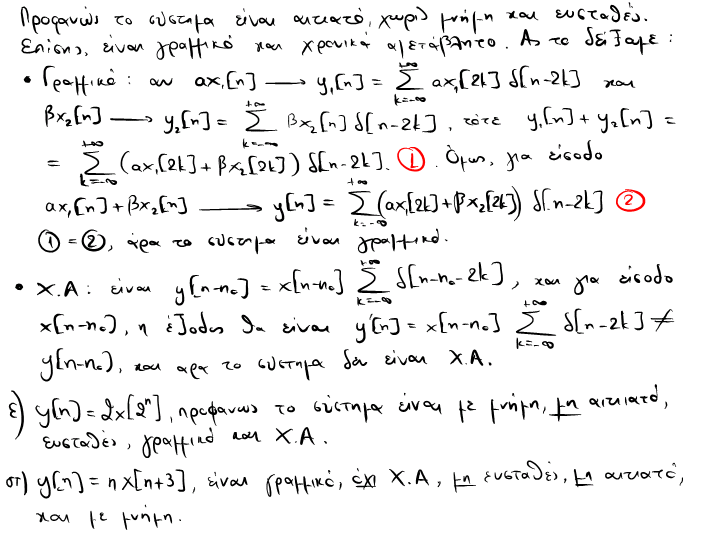 Προφανώς το σύστημα είναι αιτιατό, χωρίς μνήμη και ευσταθές.
Επίσης, είναι γραμμικό και χρονικά αμετάβλητο. Ας το δείξαμε :
• Γραμμικό : αν ax₁[n] ⟶ y₁[n] = \sum_{k=-∞}^{+∞} ax₁[2k] δ[n-2k] και
βx₂[n] ⟶ y₂[n] = \sum_{k=-∞}^{+∞} βx₂[n] δ[n-2k], τότε y₁[n] + y₂[n] =
= \sum_{k=-∞}^{+∞} (ax₁[2k] + βx₂[2k]) δ[n-2k]. ① . Όμως, για είσοδο
ax₁[n] + βx₂[n] ⟶ y[n] = \sum_{k=-∞}^{+∞} (ax₁[2k] + βx₂[2k]) δ[n-2k] ②
① = ②, άρα το σύστημα είναι γραμμικό.
• Χ.Α : είναι y[n-n₀] = x[n-n₀] \sum_{k=-∞}^{+∞} δ[n-n₀-2k], και για είσοδο
x[n-n₀], η έξοδος θα είναι y'[n] = x[n-n₀] \sum_{k=-∞}^{+∞} δ[n-2k] ≠
y[n-n₀], και αρα το σύστημα δεν είναι Χ.Α.
ε) y[n] = 2x[2ⁿ], προφανώς το σύστημα είναι με μνήμη, μη αιτιατό,
ευσταθές, γραμμικό και Χ.Α.
στ) y[n] = n x[n+3], είναι γραμμικό, όχι Χ.Α, μη ευσταθές, μη αιτιατό,
και με μνήμη.